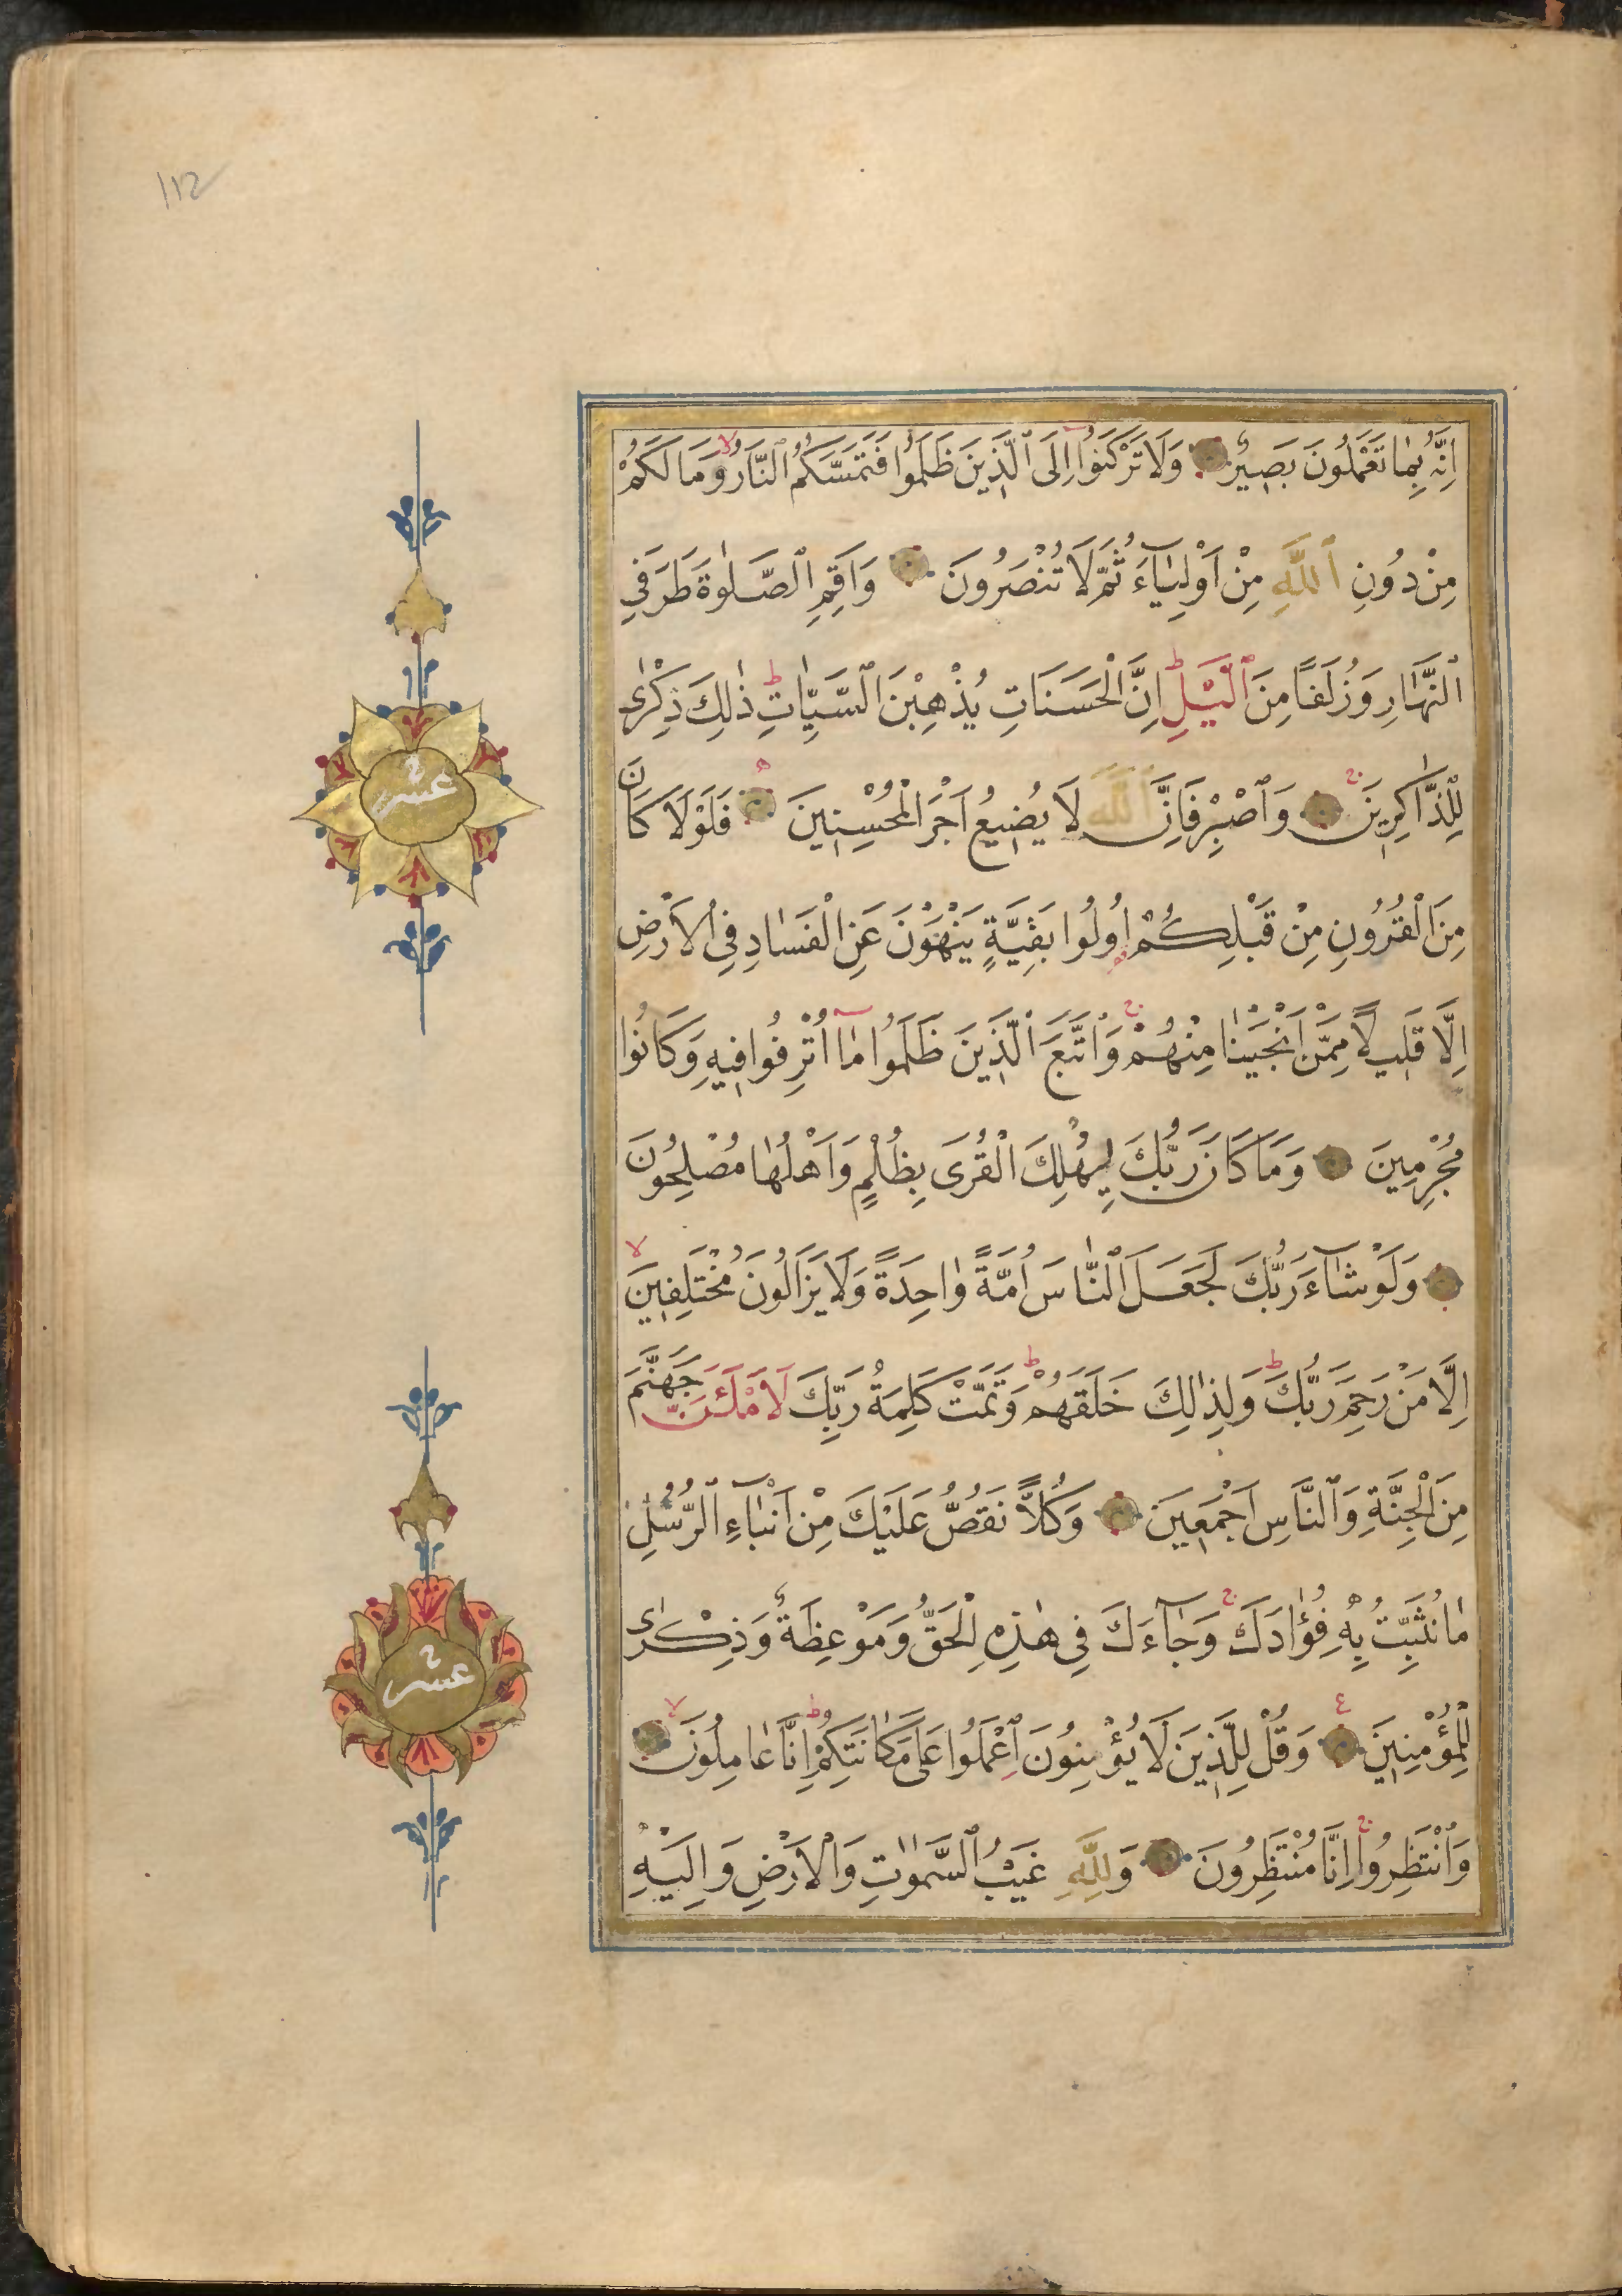 112
اِنَّهُ بِمَا تَعْمَلُونَ بَصِيرٌ وَلَا تَرْكَنُوا اِلَى ٱلَّذِينَ ظَلَمُوا فَتَمَسَّكُمُ ٱلنَّارُ وَمَا لَكُمْ
مِنْ دُونِ ٱللَّهِ مِنْ اَوْلِيَآءَ ثُمَّ لَا تُنْصَرُونَ وَاَقِمِ ٱلصَّلٰوةَ طَرَفَيِ
ٱلنَّهَارِ وَزُلَفًا مِنَ ٱلَّيْلِ ط اِنَّ الْحَسَنَاتِ يُذْهِبْنَ ٱلسَّيِّاٰتِ ط ذٰلِكَ ذِكْرٰى
لِلذَّاكِرِينَ ج وَٱصْبِرْ فَاِنَّ ٱللَّهَ لَا يُضِيعُ اَجْرَ الْمُحْسِنِينَ فَلَوْلَا كَانَ
مِنَ الْقُرُونِ مِنْ قَبْلِكُمْ اُولُوا بَقِيَّةٍ يَنْهَوْنَ عَنِ الْفَسَادِ فِى الْاَرْضِ
اِلَّا قَلِيلًا مِمَّنْ اَنْجَيْنَا مِنْهُمْ ج وَٱتَّبَعَ ٱلَّذِينَ ظَلَمُوا مَآ اُتْرِفُوا فِيهِ وَكَانُوا
مُجْرِمِينَ وَمَا كَانَ رَبُّكَ لِيُهْلِكَ الْقُرَى بِظُلْمٍ وَاَهْلُهَا مُصْلِحُونَ
وَلَوْ شَآءَ رَبُّكَ لَجَعَلَ ٱلنَّاسَ اُمَّةً وَاحِدَةً وَلَا يَزَالُونَ مُخْتَلِفِينَ لا
اِلَّا مَنْ رَحِمَ رَبُّكَ ط وَلِذٰلِكَ خَلَقَهُمْ ط وَتَمَّتْ كَلِمَةُ رَبِّكَ لَاَمْلَـَٔنَّ جَهَنَّمَ
مِنَ الْجِنَّةِ وَٱلنَّاسِ اَجْمَعِينَ وَكُلًّا نَقُصُّ عَلَيْكَ مِنْ اَنْبَآءِ ٱلرُّسُلِ
مَا نُثَبِّتُ بِهِ فُؤَادَكَ ج وَجَآءَكَ فِى هٰذِهِ الْحَقُّ وَمَوْعِظَةٌ وَذِكْرٰى
لِلْمُؤْمِنِينَ ع وَقُلْ لِلَّذِينَ لَا يُؤْمِنُونَ ٱعْمَلُوا عَلَى مَكَانَتِكُمْ ط اِنَّا عَامِلُونَ لا
وَانْتَظِرُوا ج اِنَّا مُنْتَظِرُونَ وَلِلَّهِ غَيْبُ ٱلسَّمٰوَاتِ وَالْاَرْضِ وَاِلَيْهِ
عشر
عشر